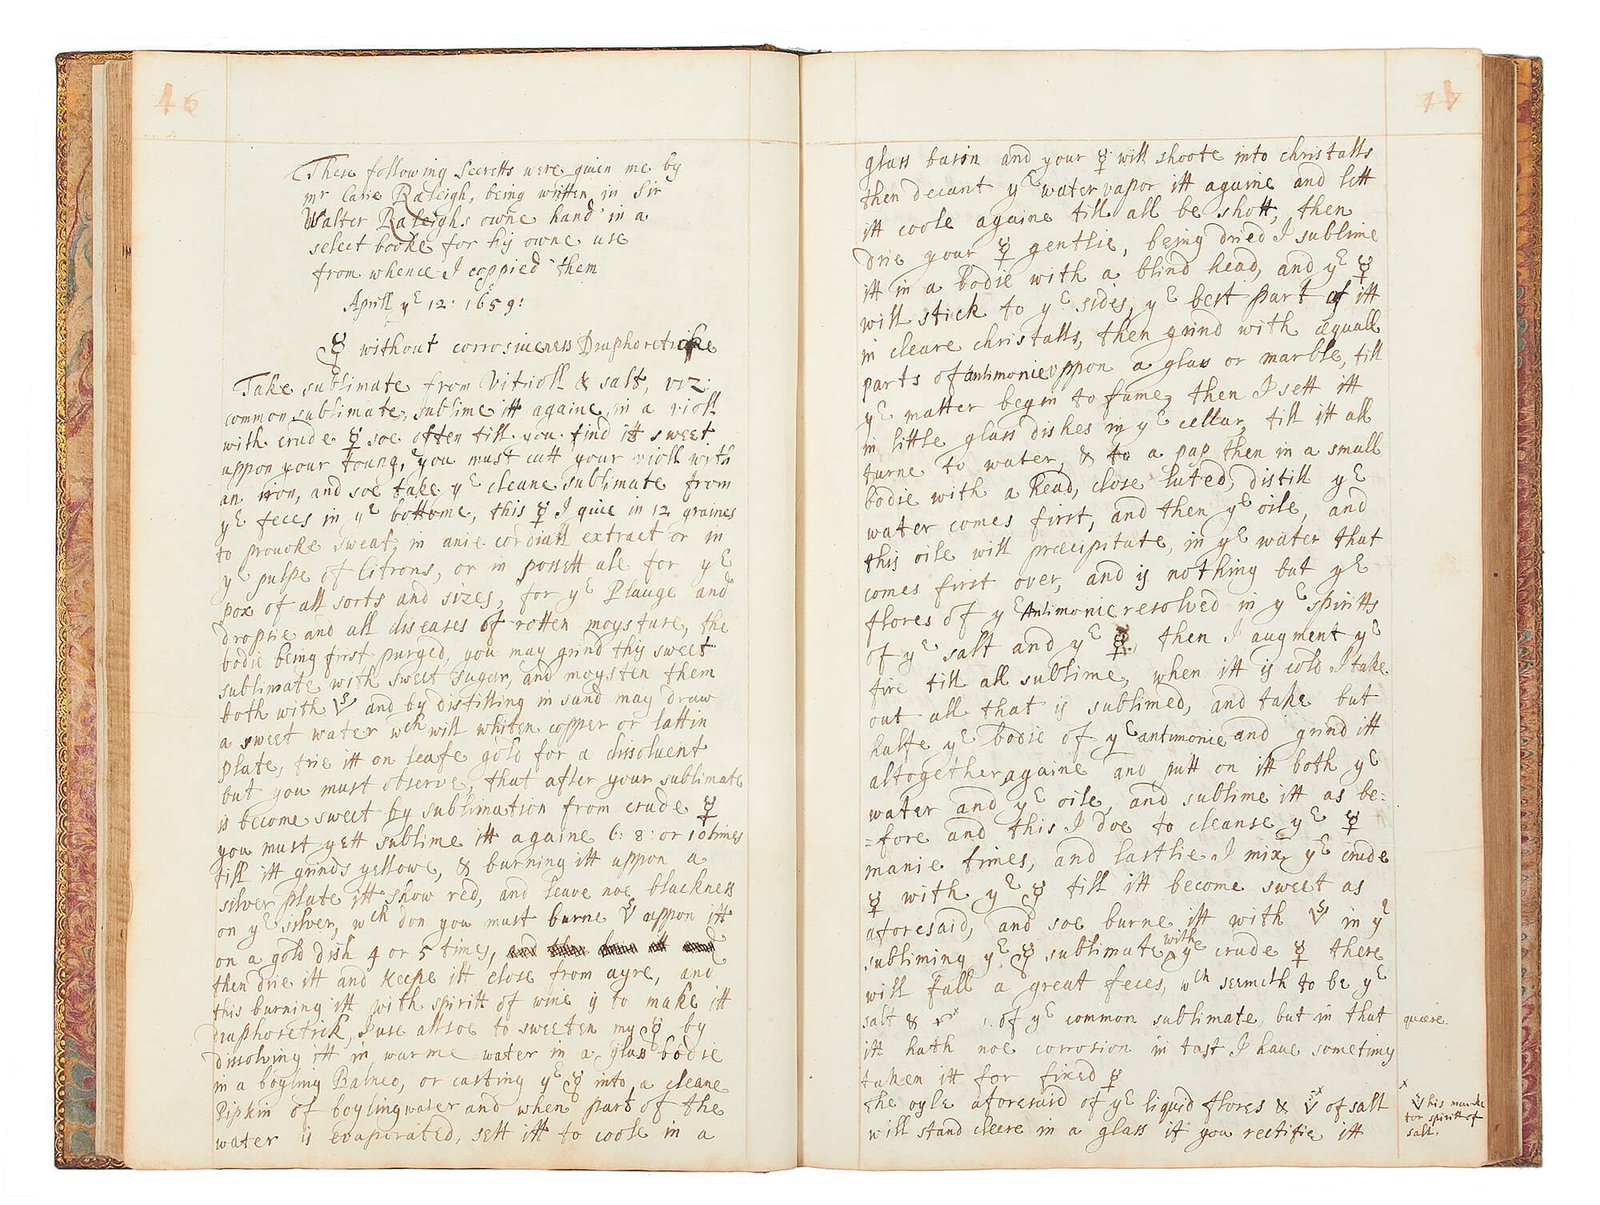 46
These following Secretts were giuen me by
mr Carie Raleigh, being written in Sir
Walter Raleighs owne hand in a
select booke for his owne use
from whence I coppied them
Aprill ye 12: 1659:
☿ without corrosiueness Diaphoreticke
Take sublimate from Vitrioll & salt, viz:
common sublimate, sublime itt againe in a violl
with crude ☿ soe often till you find itt sweet
uppon your toung, you must cutt your violl with
an iron, and soe take ye cleane sublimate from
ye feces in ye bottome, this ☿ I giue in 12 graines
to prouoke sweat, in anie cordiall extract or in
ye pulpe of Citrons, or in possitt ale for ye
pox of all sorts and sizes, for ye Plauge and
dropsie and all diseases of rotten moysture, the
bodie being first purged, you may grind thy sweet
sublimate with sweet sugar, and moysten them
both with and by distilling in sand may draw
a sweet water wch will whiten copper or lattin
plate, trie itt on leafe gold for a dissoluent
but you must observe, that after your sublimate
is become sweet by sublimation from crude ☿
you must yett sublime itt againe 6: 8: or 10 times
till itt grinds yellowe, & burning itt uppon a
silver plate itt show red, and leave noe blackness
on ye silver, wch don you must burne uppon itt
on a gold dish 4 or 5 times,
then drie itt and keepe itt close from ayre, and
this burning itt with spiritt of wine is to make itt
diaphoretick, I use allsoe to sweeten my ☿ by
dissolving itt in warme water in a glass bodie
in a boyling Balneo, or casting ye ☿ into a cleane
Pipkin of boyling water and when part of the
water is evaporated, sett itt to coole in a
47
glass basin and your ☿ will shoote into christalls
then decant ye water vapor itt againe and lett
itt coole againe till all be shott, then
drie your ☿ gentlie, being dried I sublime
itt in a bodie with a blind head, and ye ☿
will stick to ye sides, ye best part of itt
in cleare christalls, then grind with æquall
parts of antimonie uppon a glass or marble, till
ye matter begin to fume, then I sett itt
in little glass dishes in ye cellar, till itt all
turne to water, & to a pap then in a small
bodie with a head, close luted, distill ye
water comes first, and then ye oile, and
this oile will præcipitate, in ye water that
comes first over, and is nothing but ye
flores of ye Antimonie resolved in ye spiritts
of ye salt and ye ☿, then I augment ye
fire till all sublime, when itt is cold I take
out all that is sublimed, and take but
halfe ye bodie of ye antimonie and grind itt
altogether againe and putt on itt both ye
water and ye oile, and sublime itt as be-
=fore and this I doe to cleanse ye ☿
manie times, and lastlie I mix ye crude
☿ with ye ☿ till itt become sweet as
aforesaid, and soe burne itt with in ye
subliming ye ☿ sublimate with ye crude ☿ there
will fall a great feces, wch seemeth to be ye
salt & of ye common sublimate, but in that
quære.
itt hath noe corrosion in tast I haue sometimes
taken itt for fixed ☿
The oyle aforesaid of ye liquid flores & of salt
will stand cleere in a glass if you rectifie itt
x
his marke
for spiritt of
salt.